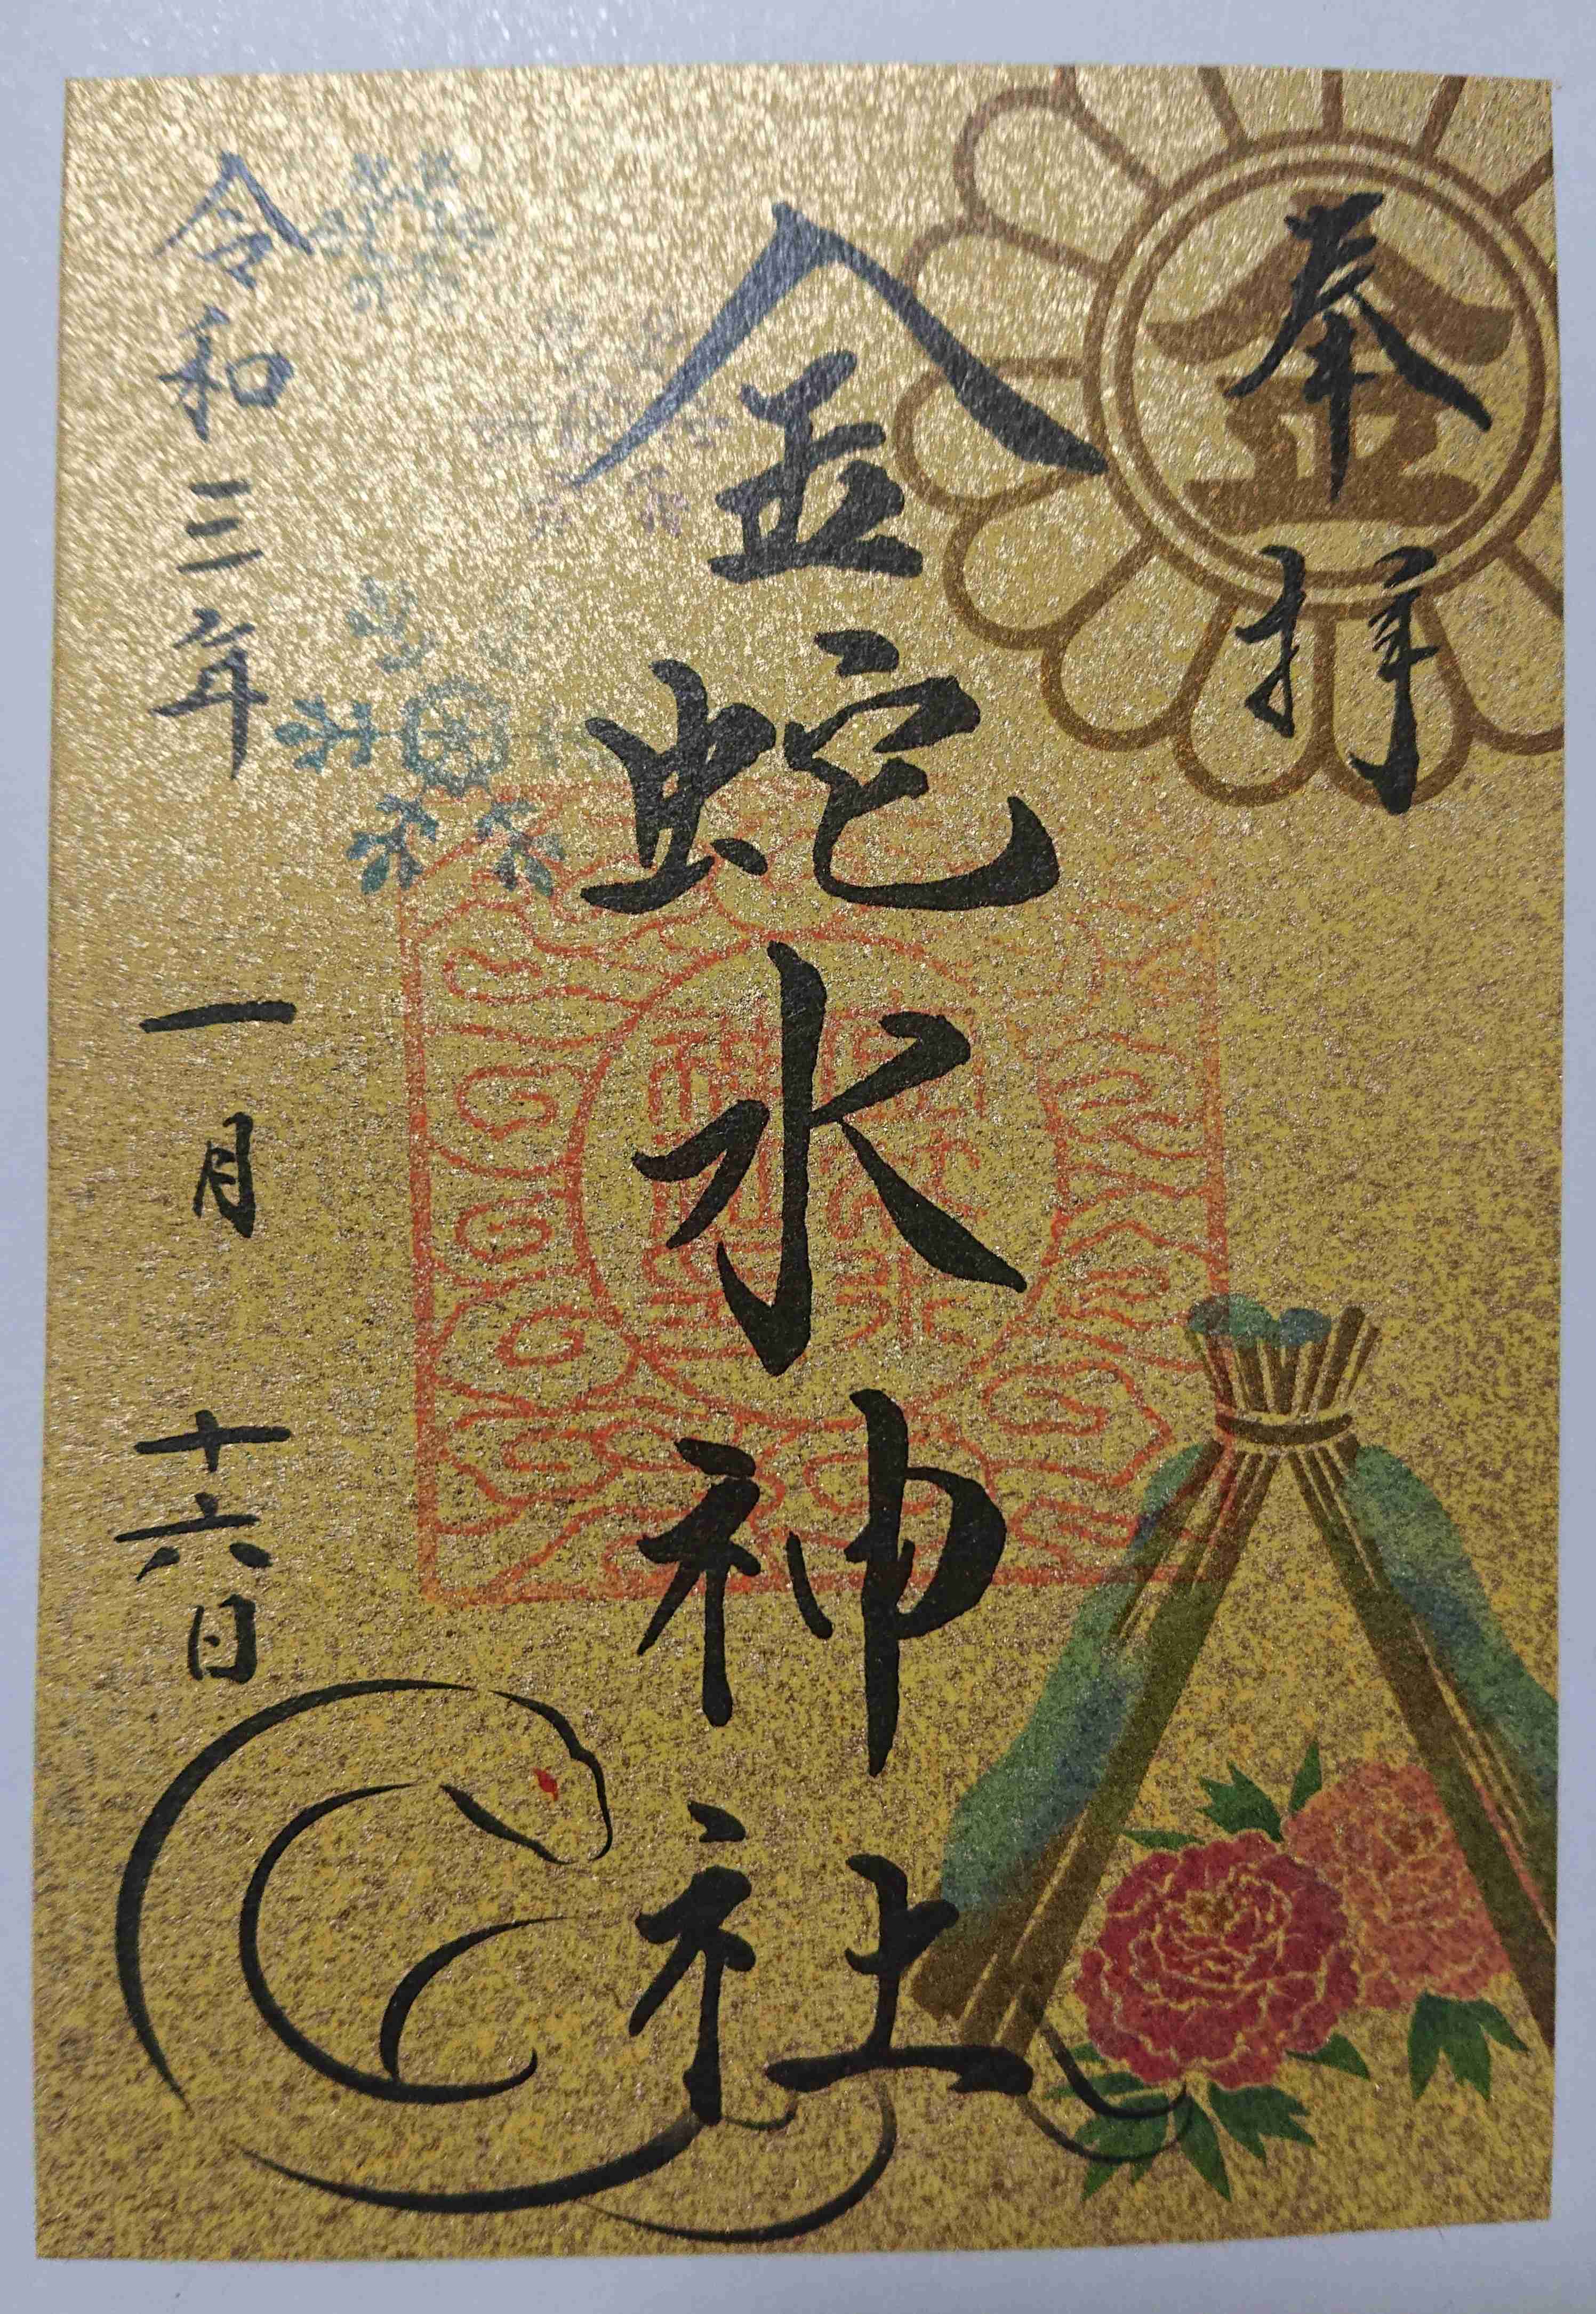 奉拝
金
金蛇水神社
令和三年 一月 十六日